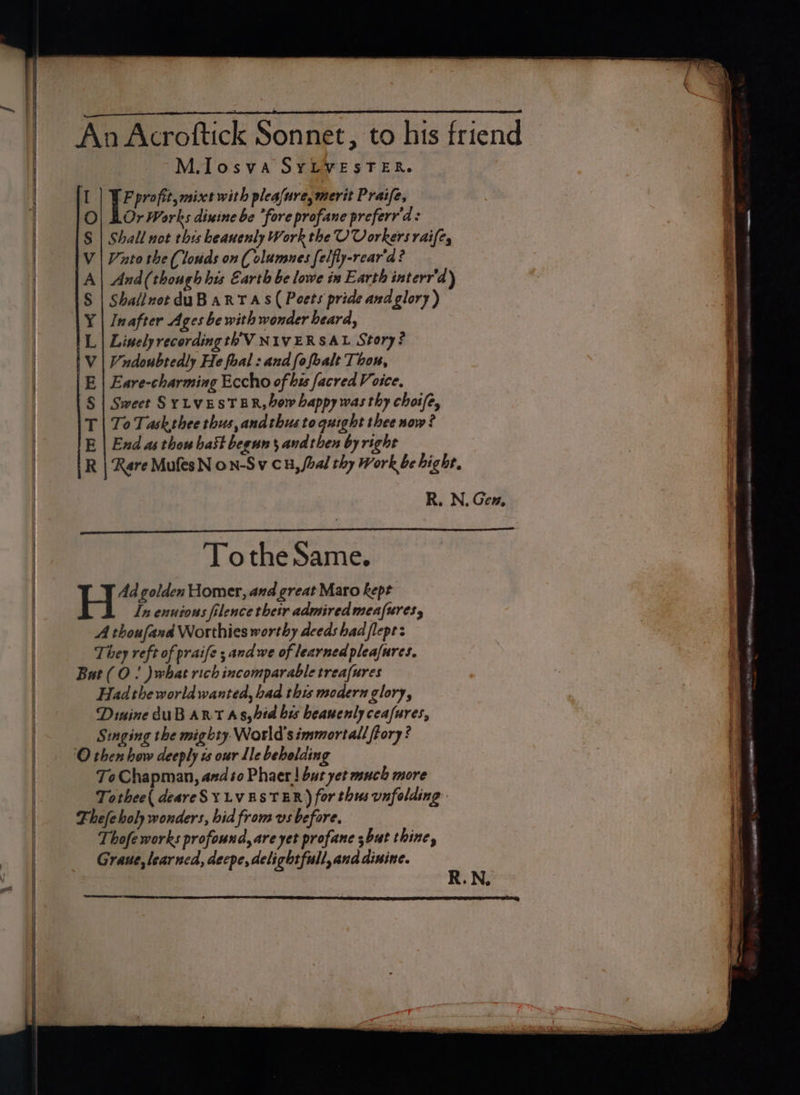 An Acroſtick Sonnet, to his friend
M. Iosva Sylvester.
I | IF profit, mixt with pleaſure, merit Praiſe,
O | Or Works diuine be 'fore profane preferr'd:
S | Shall not this heauenly Work the VVorkers raiſe,
V | Vnto the Clouds on Columnes ſelfly-rear'd?
A | And (though his Earth be lowe in Earth interr'd)
S | Shall not du Bartas (Poets pride and glory)
Y | In after Ages be with wonder heard,
L | Liuely recording th'Vniversal Story?
V | Vndoubtedly He ſhal: and ſo ſhalt Thou,
E | Eare-charming Eccho of his ſacred Voice.
S | Sweet Sylvester, how happy was thy choiſe,
T | To Task thee thus, and thus to quight thee now?
E | End as thou haſt begun; and then by right
R | Rare Muſes Non-Svch, ſhal thy Work be hight.
R. N. Gen.
To the Same.
HAd golden Homer, and great Maro kept
In enuious ſilence their admired meaſures,
A thouſand Worthies worthy deeds had ſlept:
They reft of praiſe; and we of learned pleaſures.
But (O!) what rich incomparable treaſures
Had the world wanted, had this modern glory,
Diuine du Bartas, hid his heauenly ceaſures,
Singing the mighty World's immortall ſtory?
O then how deeply is our Ile beholding
To Chapman, and to Phaer! but yet much more
To thee (deare Sylvester) for thus vnfolding
Theſe holy wonders, hid from vs before.
Thoſe works profound, are yet profane; but thine,
Graue, learned, deepe, delightfull, and diuine.
R. N.